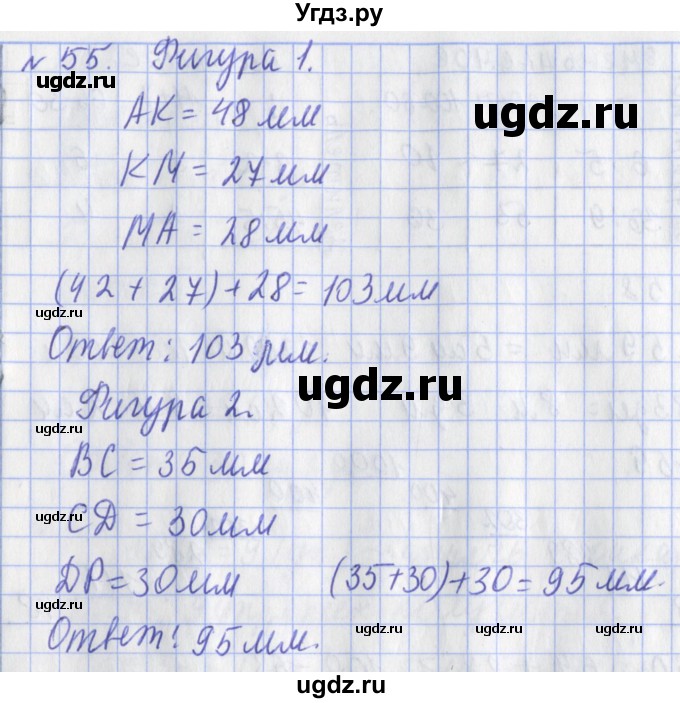 Угдз.ру
№ 55. Фигура 1.
ugdz.ru
AK = 48 мм
ugdz.ru
KM = 27 мм
MA = 28 мм
(42 + 27) + 28 = 103 мм
ugdz.ru
Ответ: 103 мм.
ugdz.ru
Фигура 2.
BC = 35 мм
ugdz.ru
CD = 30 мм
DP = 30 мм (35+30)+30 = 95 мм.
ugdz.ru ugdz.ru ugdz.ru
Ответ: 95 мм.
ugdz.ru